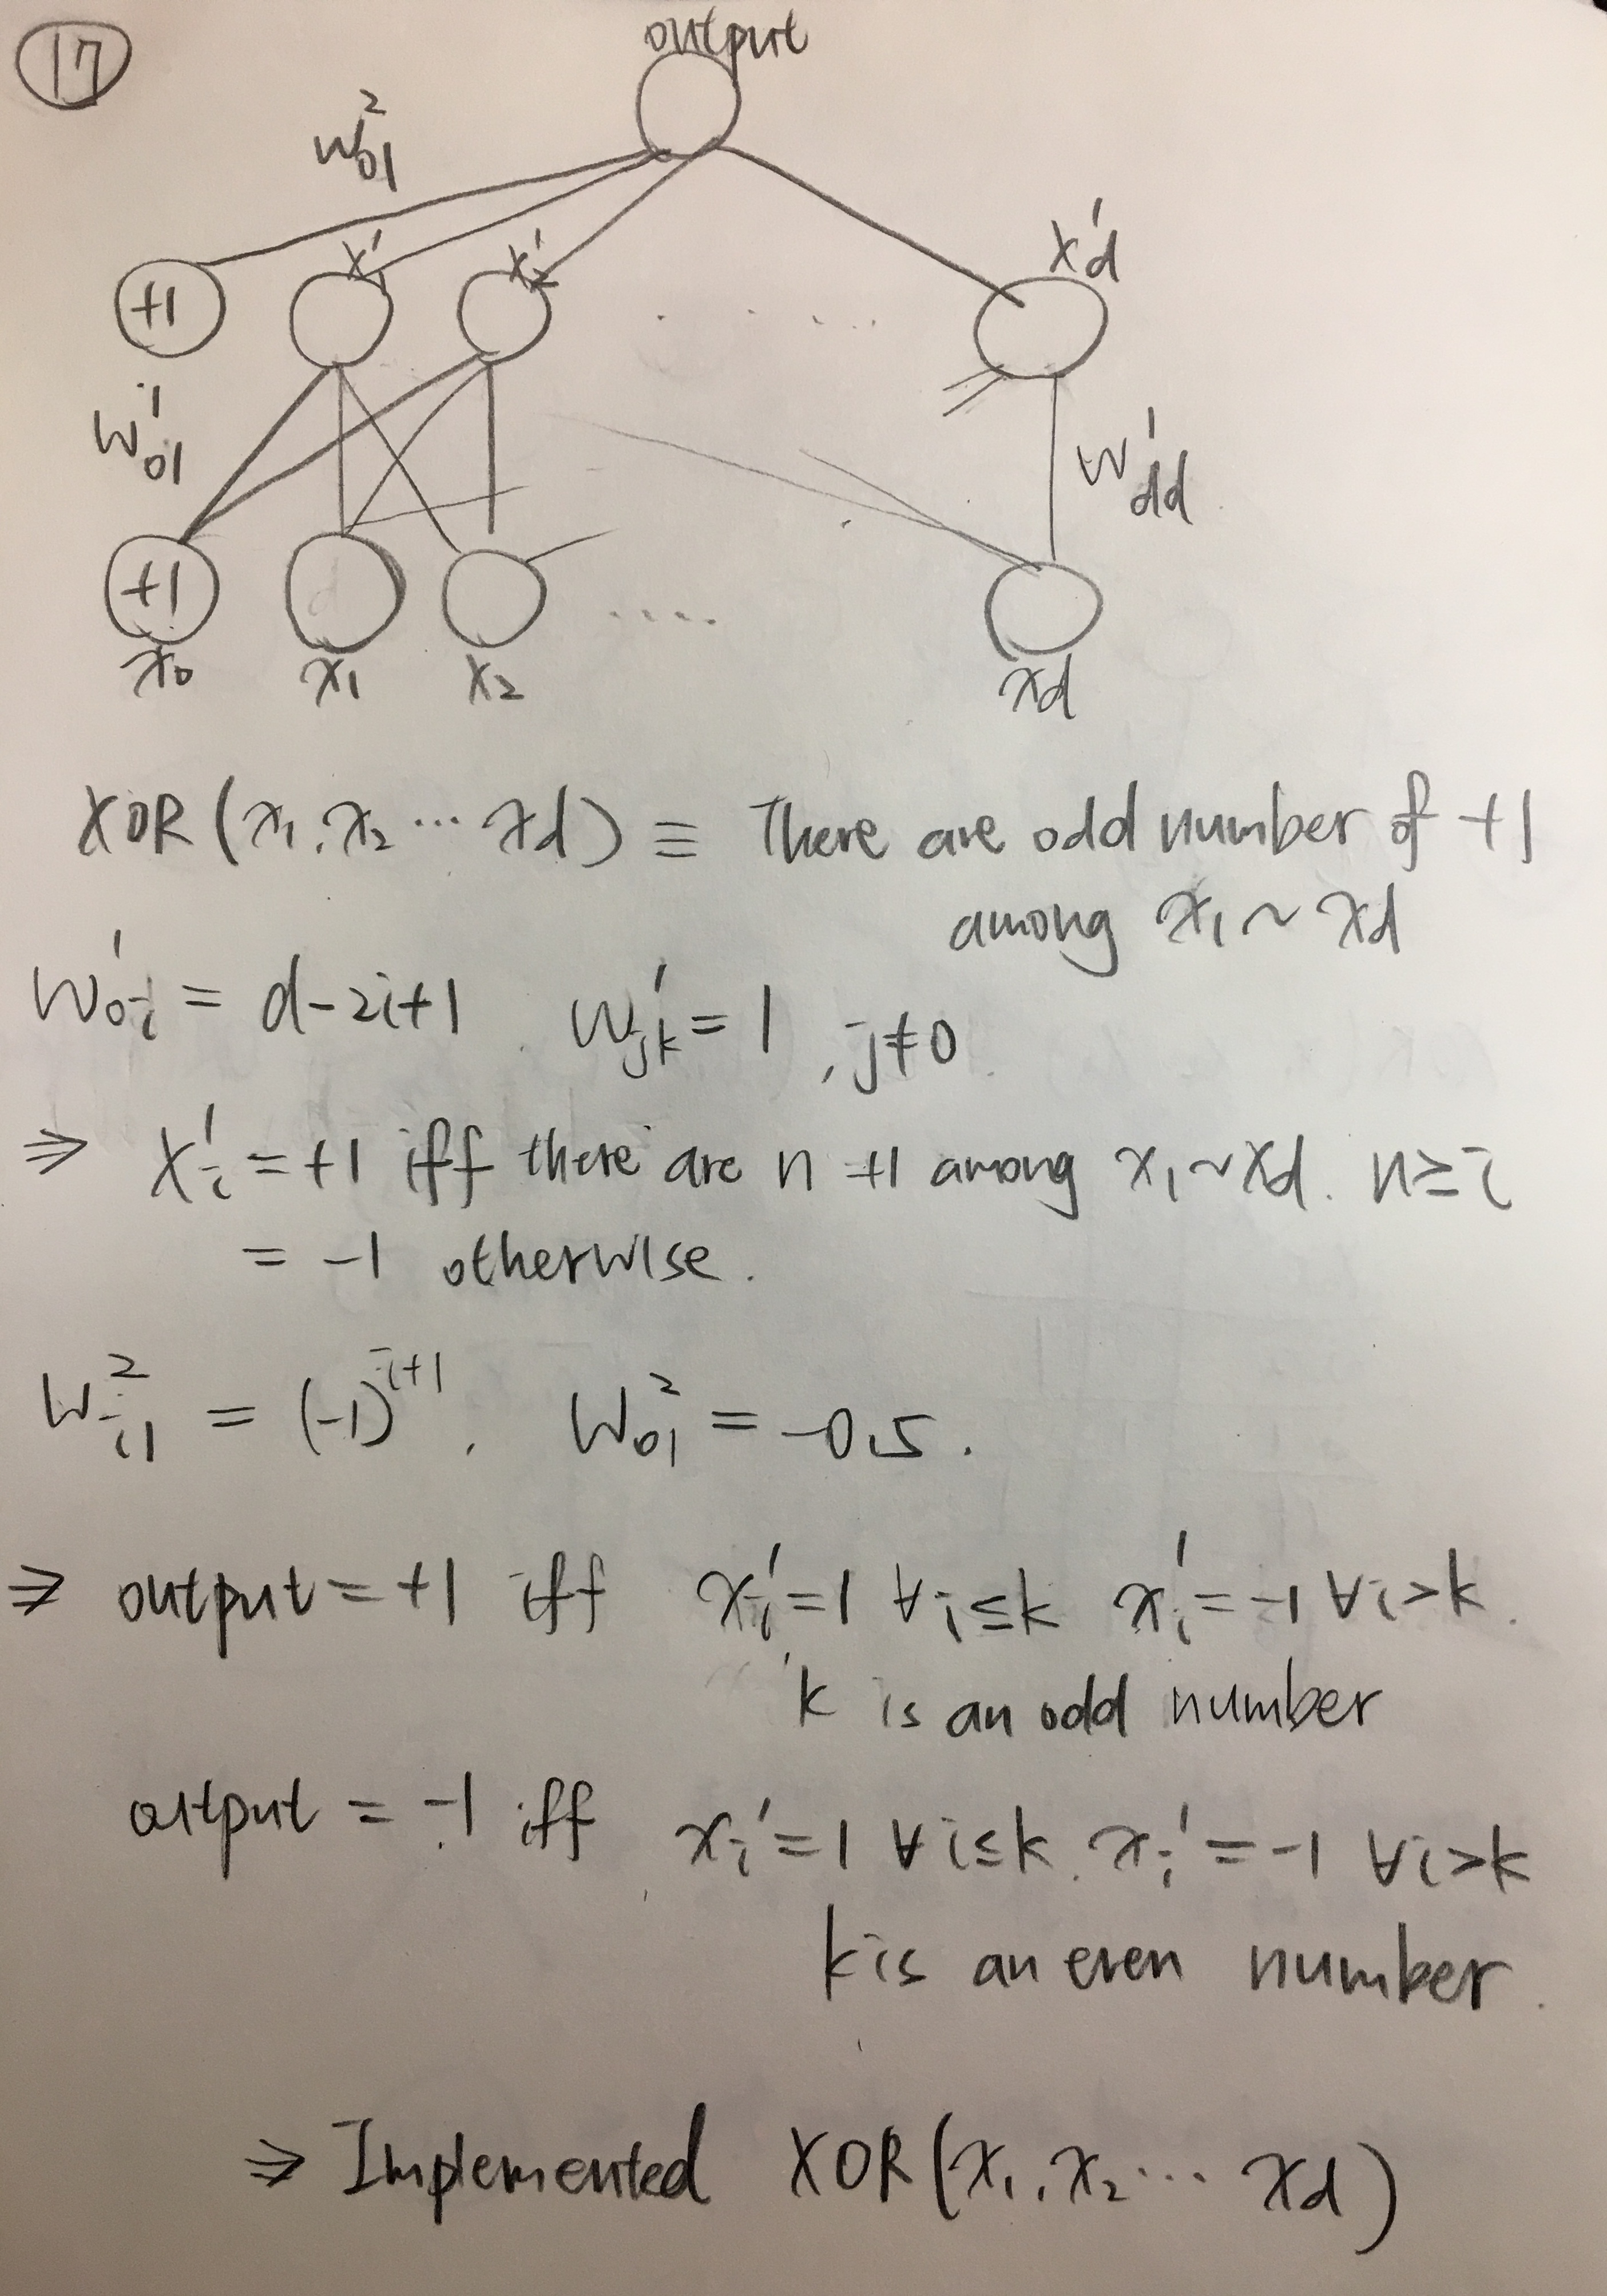 17
output
w²₀₁
+1 x'₁ x'₂ . . . . . x'd
w¹₀₁ w¹dd
+1 ....
x₀ x₁ x₂ xd
XOR(x₁, x₂ ⋯ xd) ≡ There are odd number of +1
among x₁ ~ xd
w¹₀ᵢ = d-2i+1 . w¹ⱼₖ = 1 , j≠0.
⇒ x'ᵢ = +1 iff there are n +1 among x₁~xd. n≥i
= -1 otherwise.
w²ᵢ₁ = (-1)ⁱ⁺¹ , w²₀₁ = -0.5 .
⇒ output = +1 iff x'ᵢ=1 ∀i≤k x'ᵢ=-1 ∀i>k .
k is an odd number
output = -1 iff xᵢ'=1 ∀i≤k. xᵢ'=-1 ∀i>k
k is an even number .
⇒ Implemented XOR(x₁, x₂ ⋯ xd)